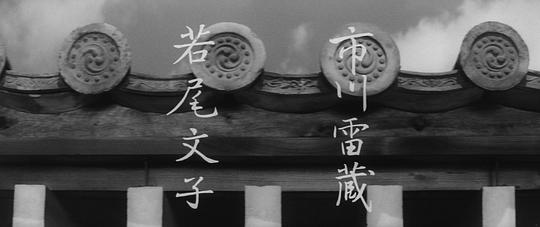 市川雷蔵
若尾文子